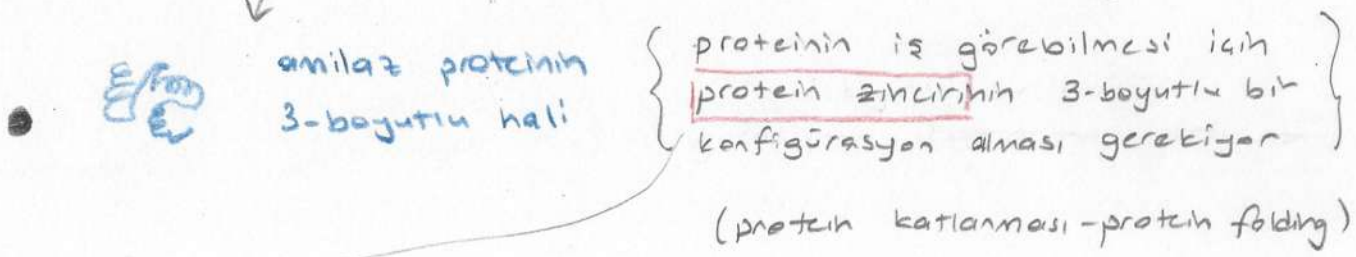 amilaz proteinin
3-boyutlu hali
proteinin iş görebilmesi için
protein zincirinin 3-boyutlu bir
konfigürasyon alması gerekiyor
(protein katlanması - protein folding)